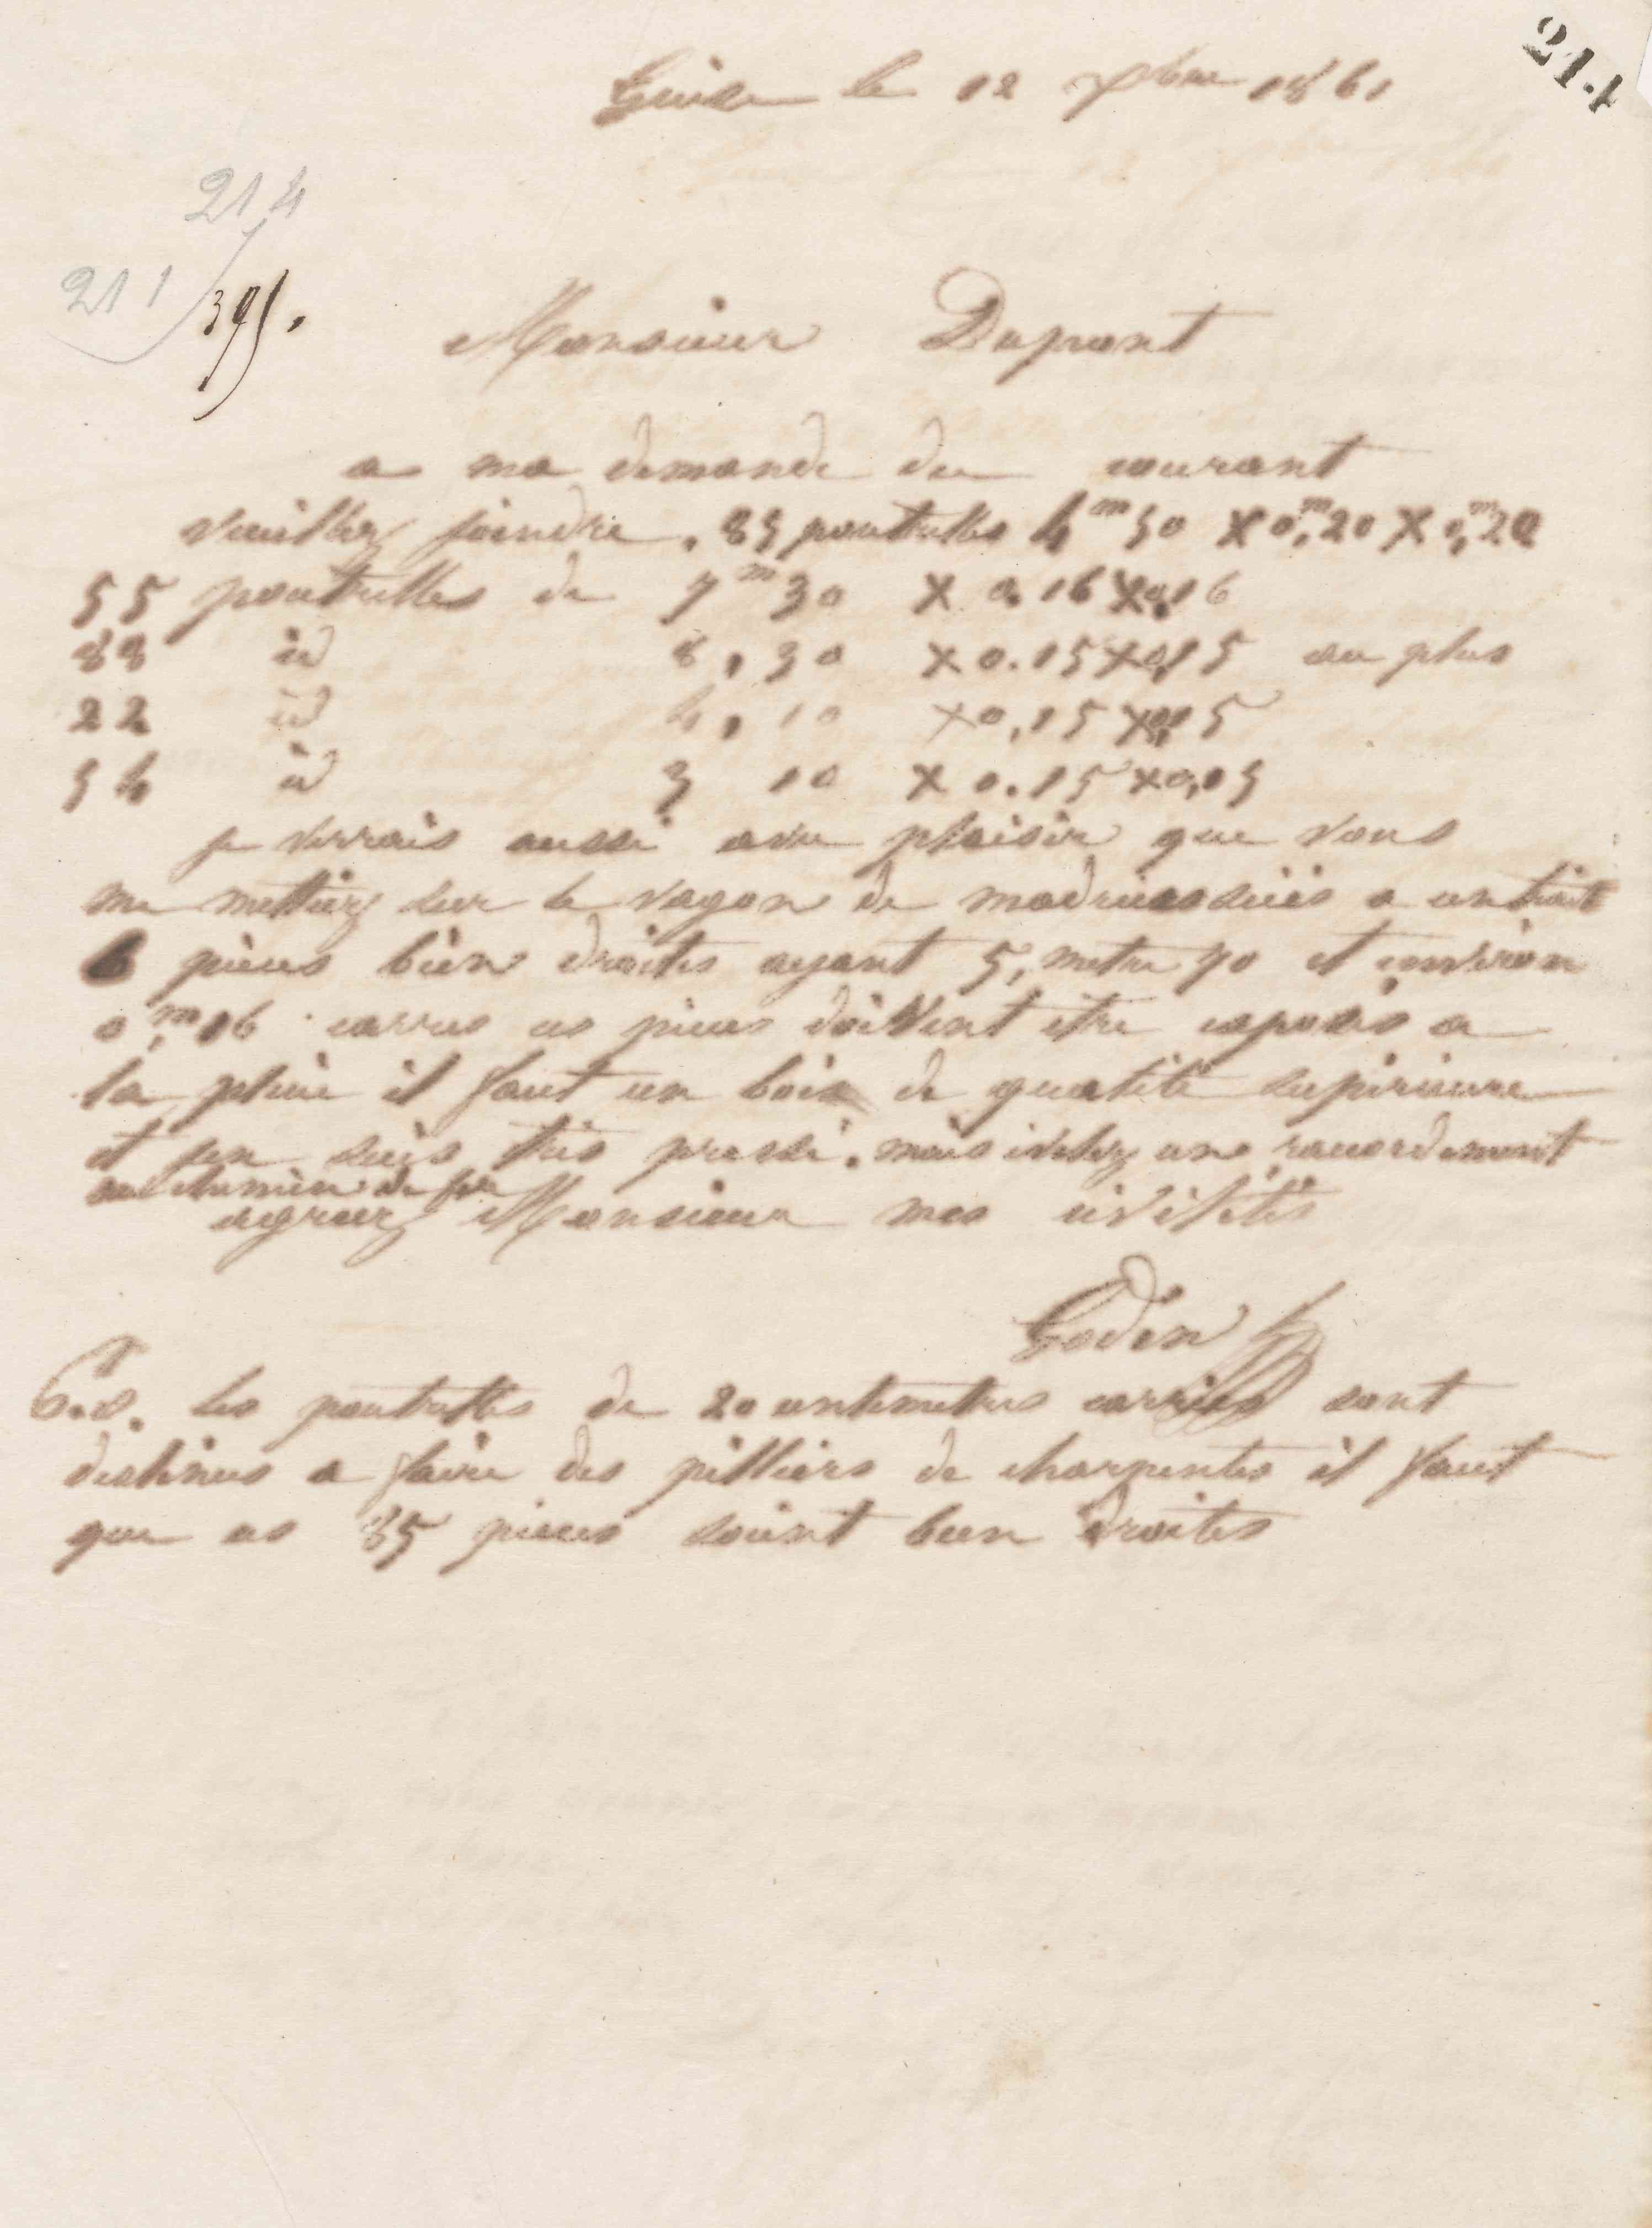 214
Guise le 12 7bre 1861
214
211
395.
Monsieur Dupront
a ma demande du courant
veuillez joindre . 85 poutrelles 4m50 x 0,m20 x 0,m20
55 poutrelles de 7m30 x 0.16 x 0,16
88 id 8,30 x 0.15 x 0,15 au plus
22 id 4,10 x 0,15 x 0,15
54 id 3 10 x 0.15 x 0,15
je verrais aussi avec plaisir que vous
me mettiez sur le vagon de madriers sciés a un trait
6 pièces bien droites ayant 5, metre 70 et environ
0,m16 carres ces pieces doivent etre exposés a
la pluie il faut un bois de qualité supérieure
et j'en suis très pressé. mais évitez une racordement
au chemin de fer
agreez Monsieur mes civilités
Godin
P.S. les poutrelles de 20 centimetres carries sont
destinees a faire des pilliers de charpentes il faut
que ces 85 pieces soient bien droites